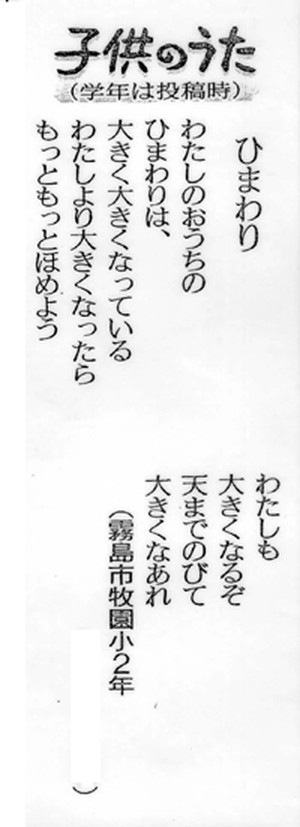 子供のうた
(学年は投稿時)
ひまわり
わたしのおうちの
ひまわりは、
大きく大きくなっている
わたしより大きくなったら
もっともっとほめよう
わたしも
大きくなるぞ
天までのびて
大きくなあれ
(霧島市牧園小2年
)